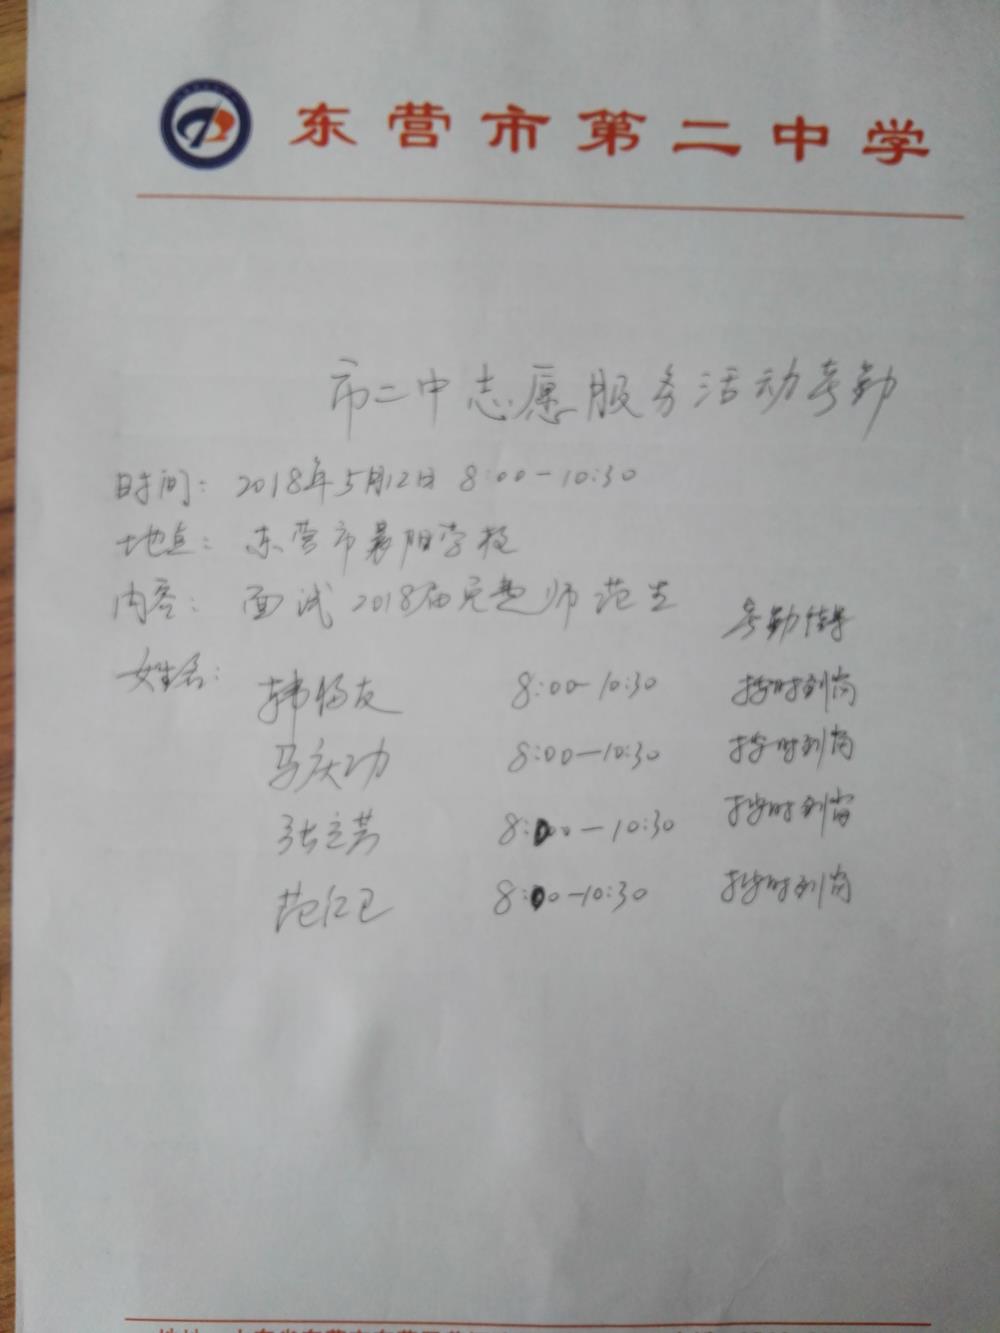 东营市第二中学
市二中志愿服务活动考勤
时间: 2018年5月12日 8:00-10:30
地点: 东营市晨阳学校
内容: 面试2018届免费师范生
考勤结果
姓名:
韩友 8:00-10:30 按时到岗
马庆功 8:00-10:30 按时到岗
张立芳 8:00-10:30 按时到岗
范红卫 8:00-10:30 按时到岗